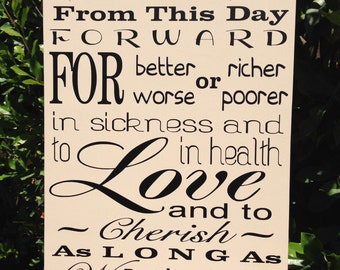 From This Day
FORWARD
FOR better or richer
worse poorer
in sickness and
to in health
Love
and to
~ Cherish ~
As LONG As